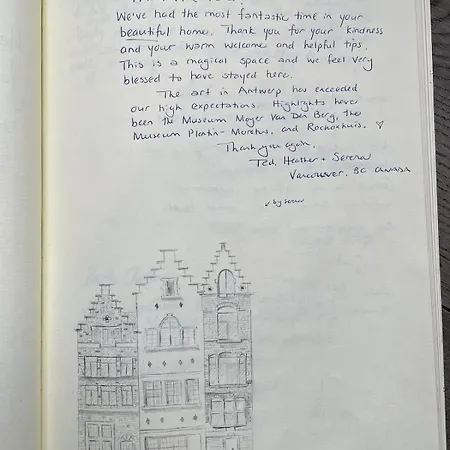 We've had the most fantastic time in your
beautiful home. Thank you for your kindness
and your warm welcome and helpful tips.
This is a magical space and we feel very
blessed to have stayed here.
The art in Antwerp has exceeded
our high expectations. Highlights have
been the Museum Mayer Van Den Berg, the
Museum Plantin-Moretus, and Rockoxhuis. ♡
Thank you again,
Ted, Heather + Serena
Vancouver, BC Canada
by Serena